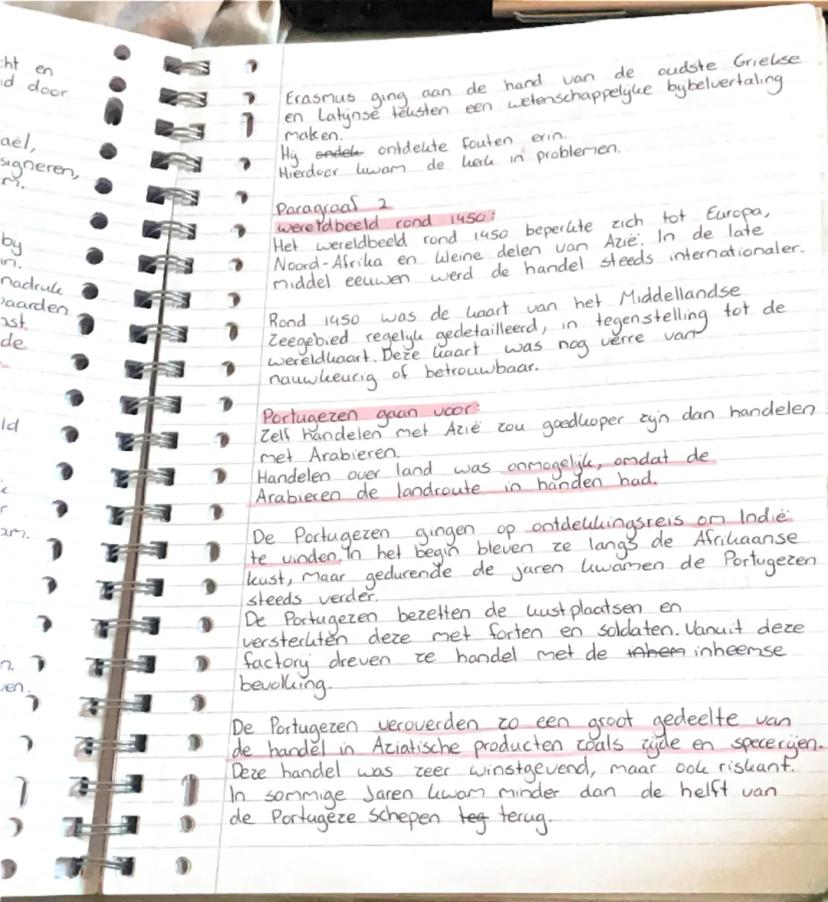 cht en
id door
aël,
signeren,
by
nadruk
paarden
ast
de
ld
am.
n.
ven.
Erasmus ging aan de hand van de oudste Griekse
en Latijnse teksten een wetenschappelijke bijbelvertaling
maken.
Hij ondek ontdekte fouten erin.
Hierdoor kwam de kerk in problemen.
Paragraaf 2
wereldbeeld rond 1450:
Het wereldbeeld rond 1450 beperkte zich tot Europa,
Noord-Afrika en kleine delen van Azië. In de late
middel eeuwen werd de handel steeds internationaler.
Rond 1450 was de kaart van het Middellandse
Zeegebied regelijk gedetailleerd, in tegenstelling tot de
wereldkaart. Deze kaart was nog verre van
nauwkeurig of betrouwbaar.
Portugezen gaan voor:
Zelf handelen met Azië zou goedkoper zijn dan handelen
met Arabieren.
Handelen over land was onmogelijk, omdat de
Arabieren de landroute in handen had.
De Portugezen gingen op ontdekkingsreis om Indië
te vinden. In het begin bleven ze langs de Afrikaanse
kust, maar gedurende de jaren kwamen de Portugezen
steeds verder.
De Portugezen bezetten de kustplaatsen en
versterkten deze met forten en soldaten. Vanuit deze
factory dreven ze handel met de inhem inheemse
bevolking.
De Portugezen veroverden zo een groot gedeelte van
de handel in Aziatische producten zoals zijde en specerijen.
Deze handel was zeer winstgevend, maar ook riskant.
In sommige Jaren kwam minder dan de helft van
de Portugeze schepen teg terug.